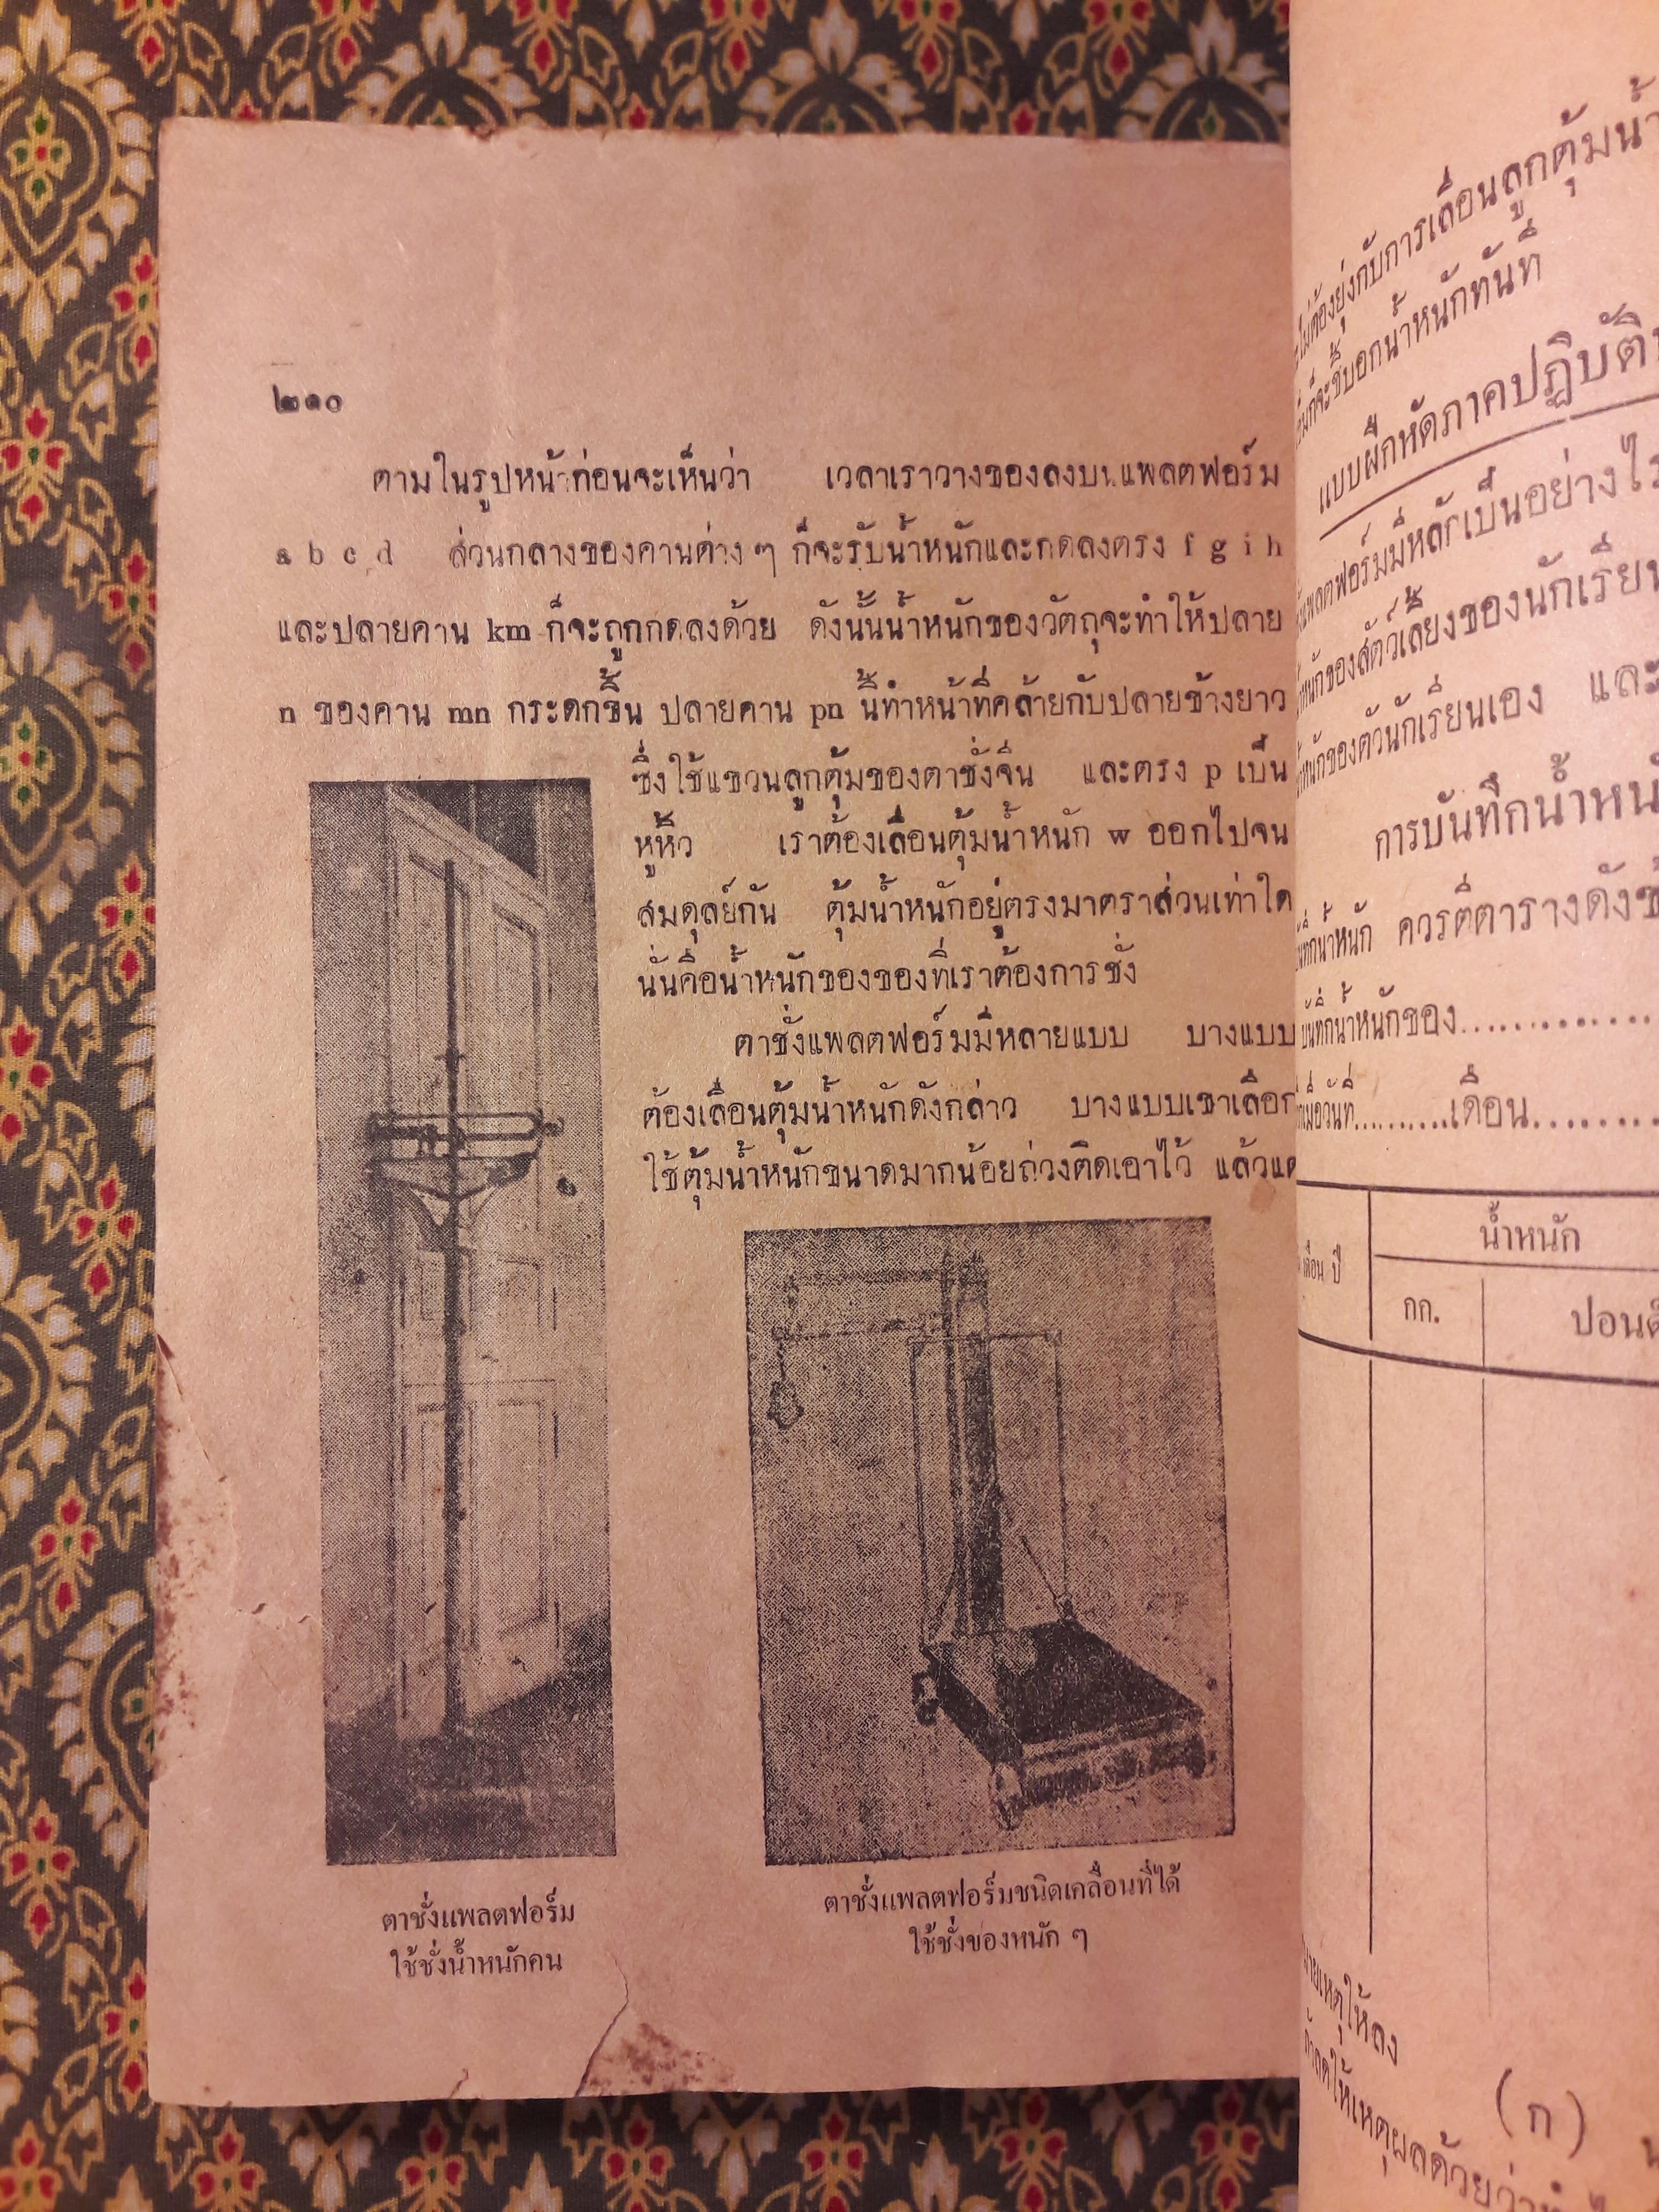 ๒๑๐
ตามในรูปหน้าก่อนจะเห็นว่า เวลาเราวางของลงบนแพลตฟอร์ม
a b c d ส่วนกลางของคานต่าง ๆ ก็จะรับน้ำหนักและกดลงตรง f g i h
และปลายคาน km ก็จะถูกกดลงด้วย ดังนั้นน้ำหนักของวัตถุจะทำให้ปลาย
n ของคาน mn กระดกขึ้น ปลายคาน pn นี้ทำหน้าที่คล้ายกับปลายข้างยาว
ซึ่งใช้แขวนลูกตุ้มของตาชั่งจีน และตรง p เป็น
หูหิ้ว เราต้องเลื่อนตุ้มน้ำหนัก w ออกไปจน
สมดุลย์กัน ตุ้มน้ำหนักอยู่ตรงมาตราส่วนเท่าใด
นั่นคือน้ำหนักของของที่เราต้องการชั่ง
ตาชั่งแพลตฟอร์มมีหลายแบบ บางแบบ
ต้องเลื่อนตุ้มน้ำหนักดังกล่าว บางแบบเขาเลือก
ใช้ตุ้มน้ำหนักขนาดมากน้อยถ่วงติดเอาไว้ แล้วแต่
ตาชั่งแพลตฟอร์ม
ใช้ชั่งน้ำหนักคน
ตาชั่งแพลตฟอร์มชนิดเคลื่อนที่ได้
ใช้ชั่งของหนัก ๆ
ไม่ต้องยุ่งกับการเลื่อนลูกตุ้มน้ำ
ก็จะชี้บอกน้ำหนักทันที
แบบฝึกหัดภาคปฏิบัติ
แพลตฟอร์มมีหลักเป็นอย่างไร
ของสัตว์เลี้ยงของนักเรียน
ของตัวนักเรียนเอง และ
การบันทึกน้ำหนัก
น้ำหนัก ควรตีตารางดังข้
บันทึกน้ำหนักของ..............
เมื่อวันที่..........เดือน..........
เดือน ปี
น้ำหนัก
กก.
ปอนด์
ให้ลง
ให้เหตุผลด้วยว่า
(ก)